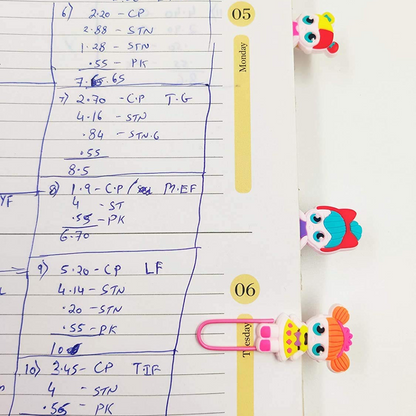 05
Monday
6) 2.20 - CP
2.88 - STN
1.28 - STN
.55 - PK
7) 2.70 - C.P T.G
4.16 - STN
.84 - STN.G
.55
8.5
8) 1.9 - C.P M.EF
4 - ST
.55 - PK
6.70
YF
9) 5.20 - CP LF
4.14 - STN
.20 - STN
.55 - PK
06
Tuesday
10) 2.45 - CP T.IF
4 - STN
.55 - PK